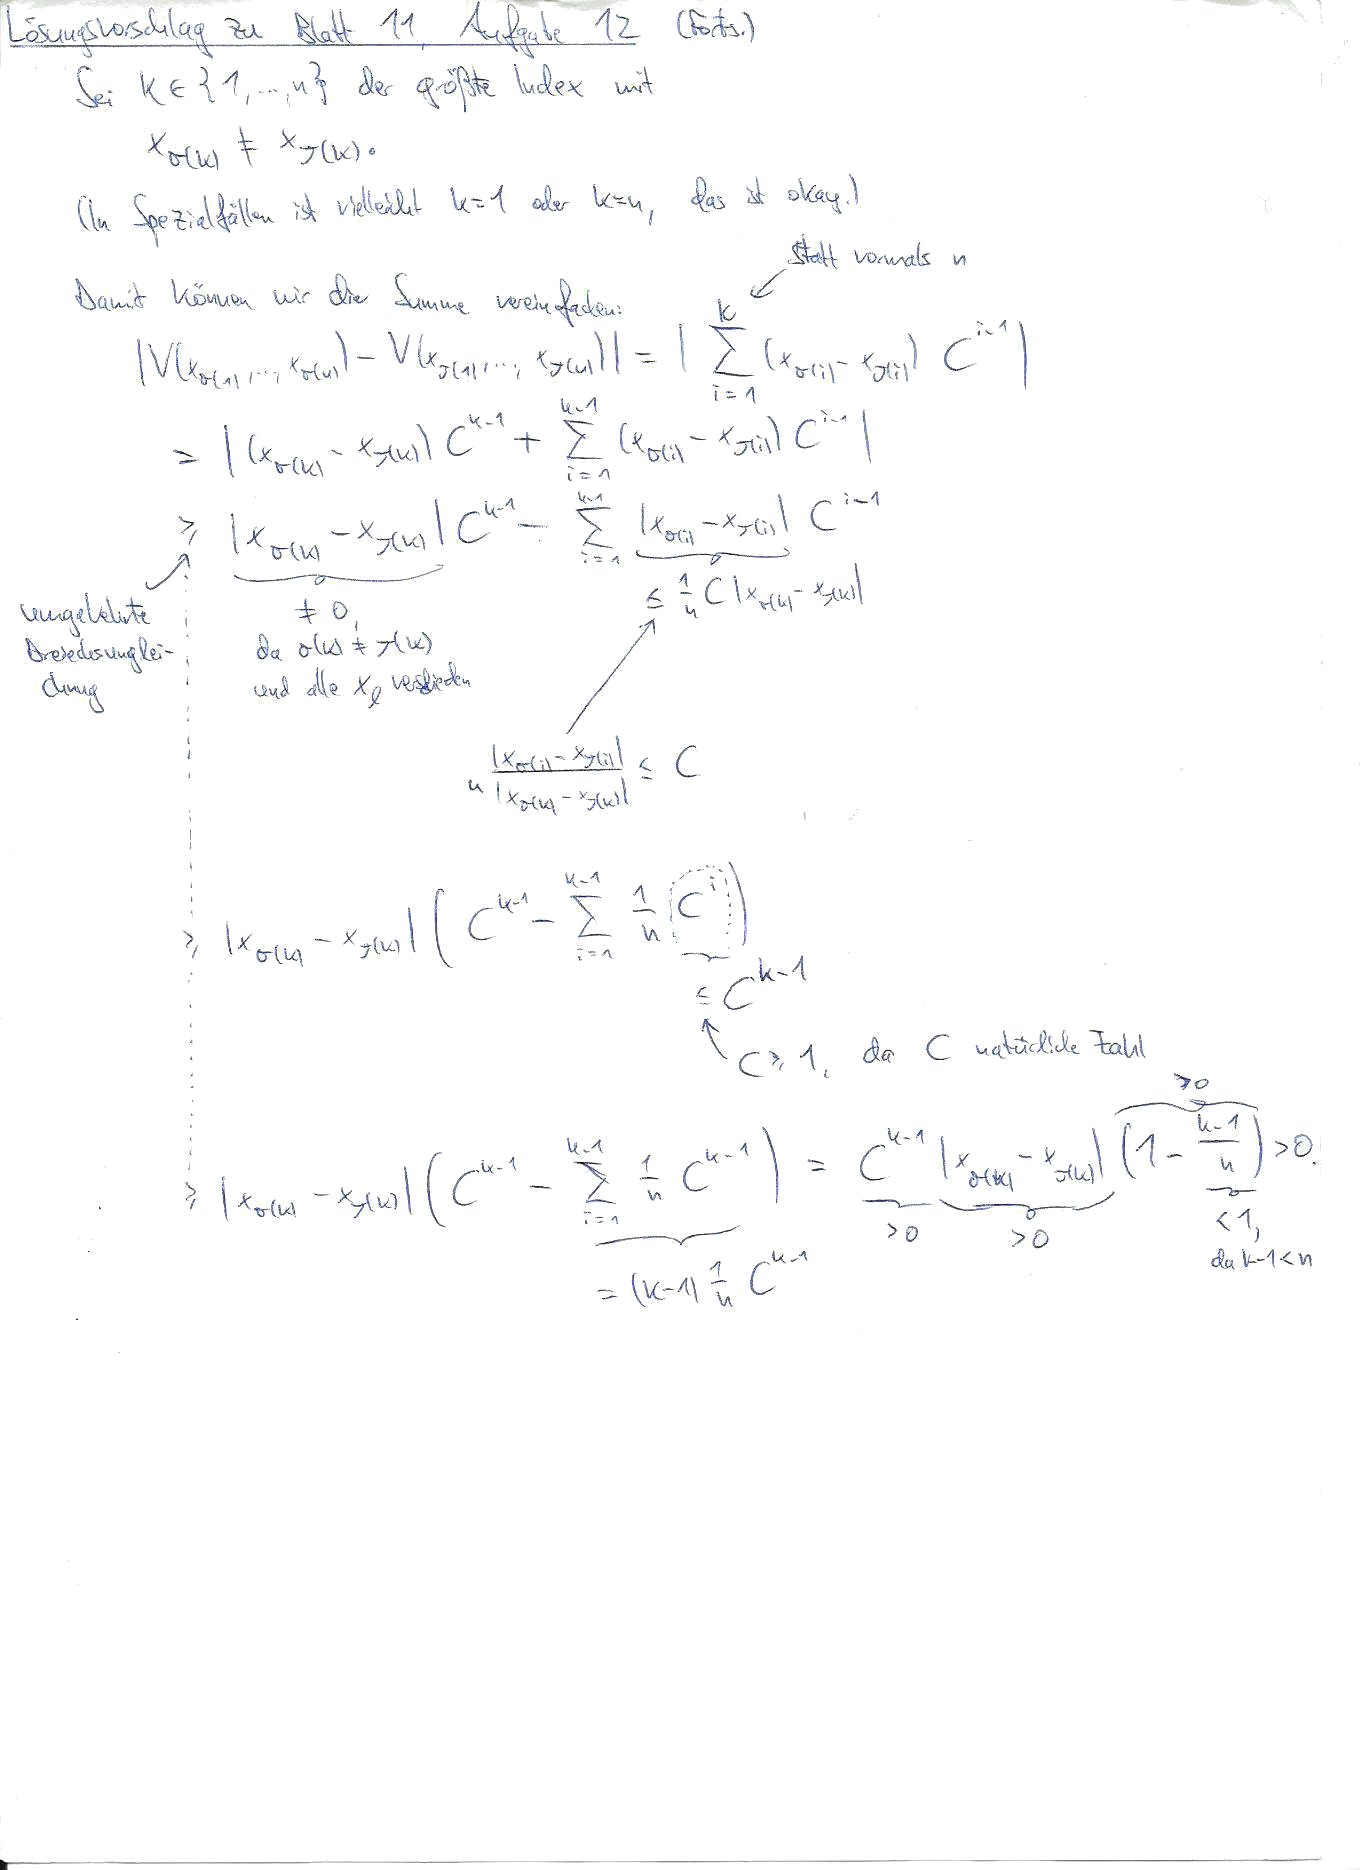 Lösungsvorschlag zu Blatt 11, Aufgabe 12 (Forts.)
Sei k ∈ {1,...,n} der größte Index mit
x_σ(k) ≠ x_τ(k).
(In Spezialfällen ist vielleicht k=1 oder k=n, das ist okay.)
statt vormals n
Damit können wir die Summe vereinfachen:
|V(x_σ(1),..., x_σ(n)) − V(x_τ(1),..., x_τ(n))| = | ∑_{i=1}^{k} (x_σ(i) − x_τ(i)) C^{i-1} |
= | (x_σ(k) − x_τ(k)) C^{k-1} + ∑_{i=1}^{k-1} (x_σ(i) − x_τ(i)) C^{i-1} |
≥ |x_σ(k) − x_τ(k)| C^{k-1} − ∑_{i=1}^{k-1} |x_σ(i) − x_τ(i)| C^{i-1}
≤ 1/n C |x_σ(k) − x_τ(k)|
umgekehrte
Dreiecksunglei-
chung
≠ 0,
da σ(k) ≠ τ(k)
und alle x_l verschieden
n |x_σ(i) − x_τ(i)| / |x_σ(k) − x_τ(k)| ≤ C
≥ |x_σ(k) − x_τ(k)| ( C^{k-1} − ∑_{i=1}^{k-1} 1/n C^i )
≤ C^{k-1}
C ≥ 1, da C natürliche Zahl
>0
≥ |x_σ(k) − x_τ(k)| ( C^{k-1} − ∑_{i=1}^{k-1} 1/n C^{k-1} ) = C^{k-1} |x_σ(k) − x_τ(k)| (1 − (k-1)/n) > 0.
>0 >0 <1,
da k-1<n
= (k-1) 1/n C^{k-1}